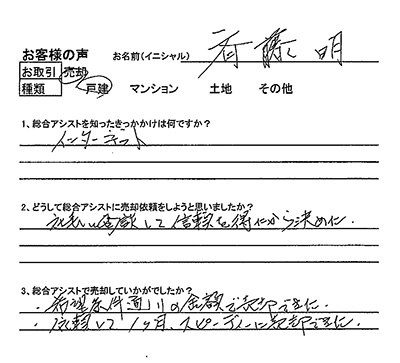 お客様の声 お名前(イニシャル)
お取引 売却
種類 戸建 マンション 土地 その他
1、総合アシストを知ったきっかかけは何ですか?
インターネット
2、どうして総合アシストに売却依頼をしようと思いましたか?
面談して信頼を得たから決めた.
3、総合アシストで売却していかがでしたか?
・希望条件通りの金額で売却できた.
・依頼して1ヶ月、スピーディーに売却できた.